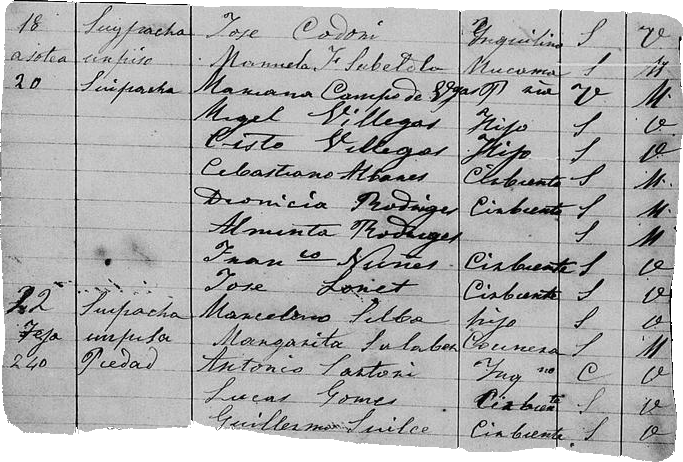 18 Suypacha Jose Codoni Ynquilino S V
asotea un piso Manuela F Mucama S M
20 Suipacha Mariana Campo de Vgas P ria V M.
Migel Villegas Hijo S V
Cisto Villegas Hijo S V
Cebastiano Albares Cirbiente S M.
Dionicia Rodriges Cirbiente S M.
Alminta Rodriges S M
Fran co Nuñes Cirbiente S V
Jose Lonet Cirbiente S V
22 Suipacha Marcelino Silba hijo S V
Teja un piso Margarita Salaber Cosinera S M
240 Piedad Antonio Sartori Ynq no C V
Lucas Gomes Cirbiente S V
Guillermo Suilce Cirbiente S V